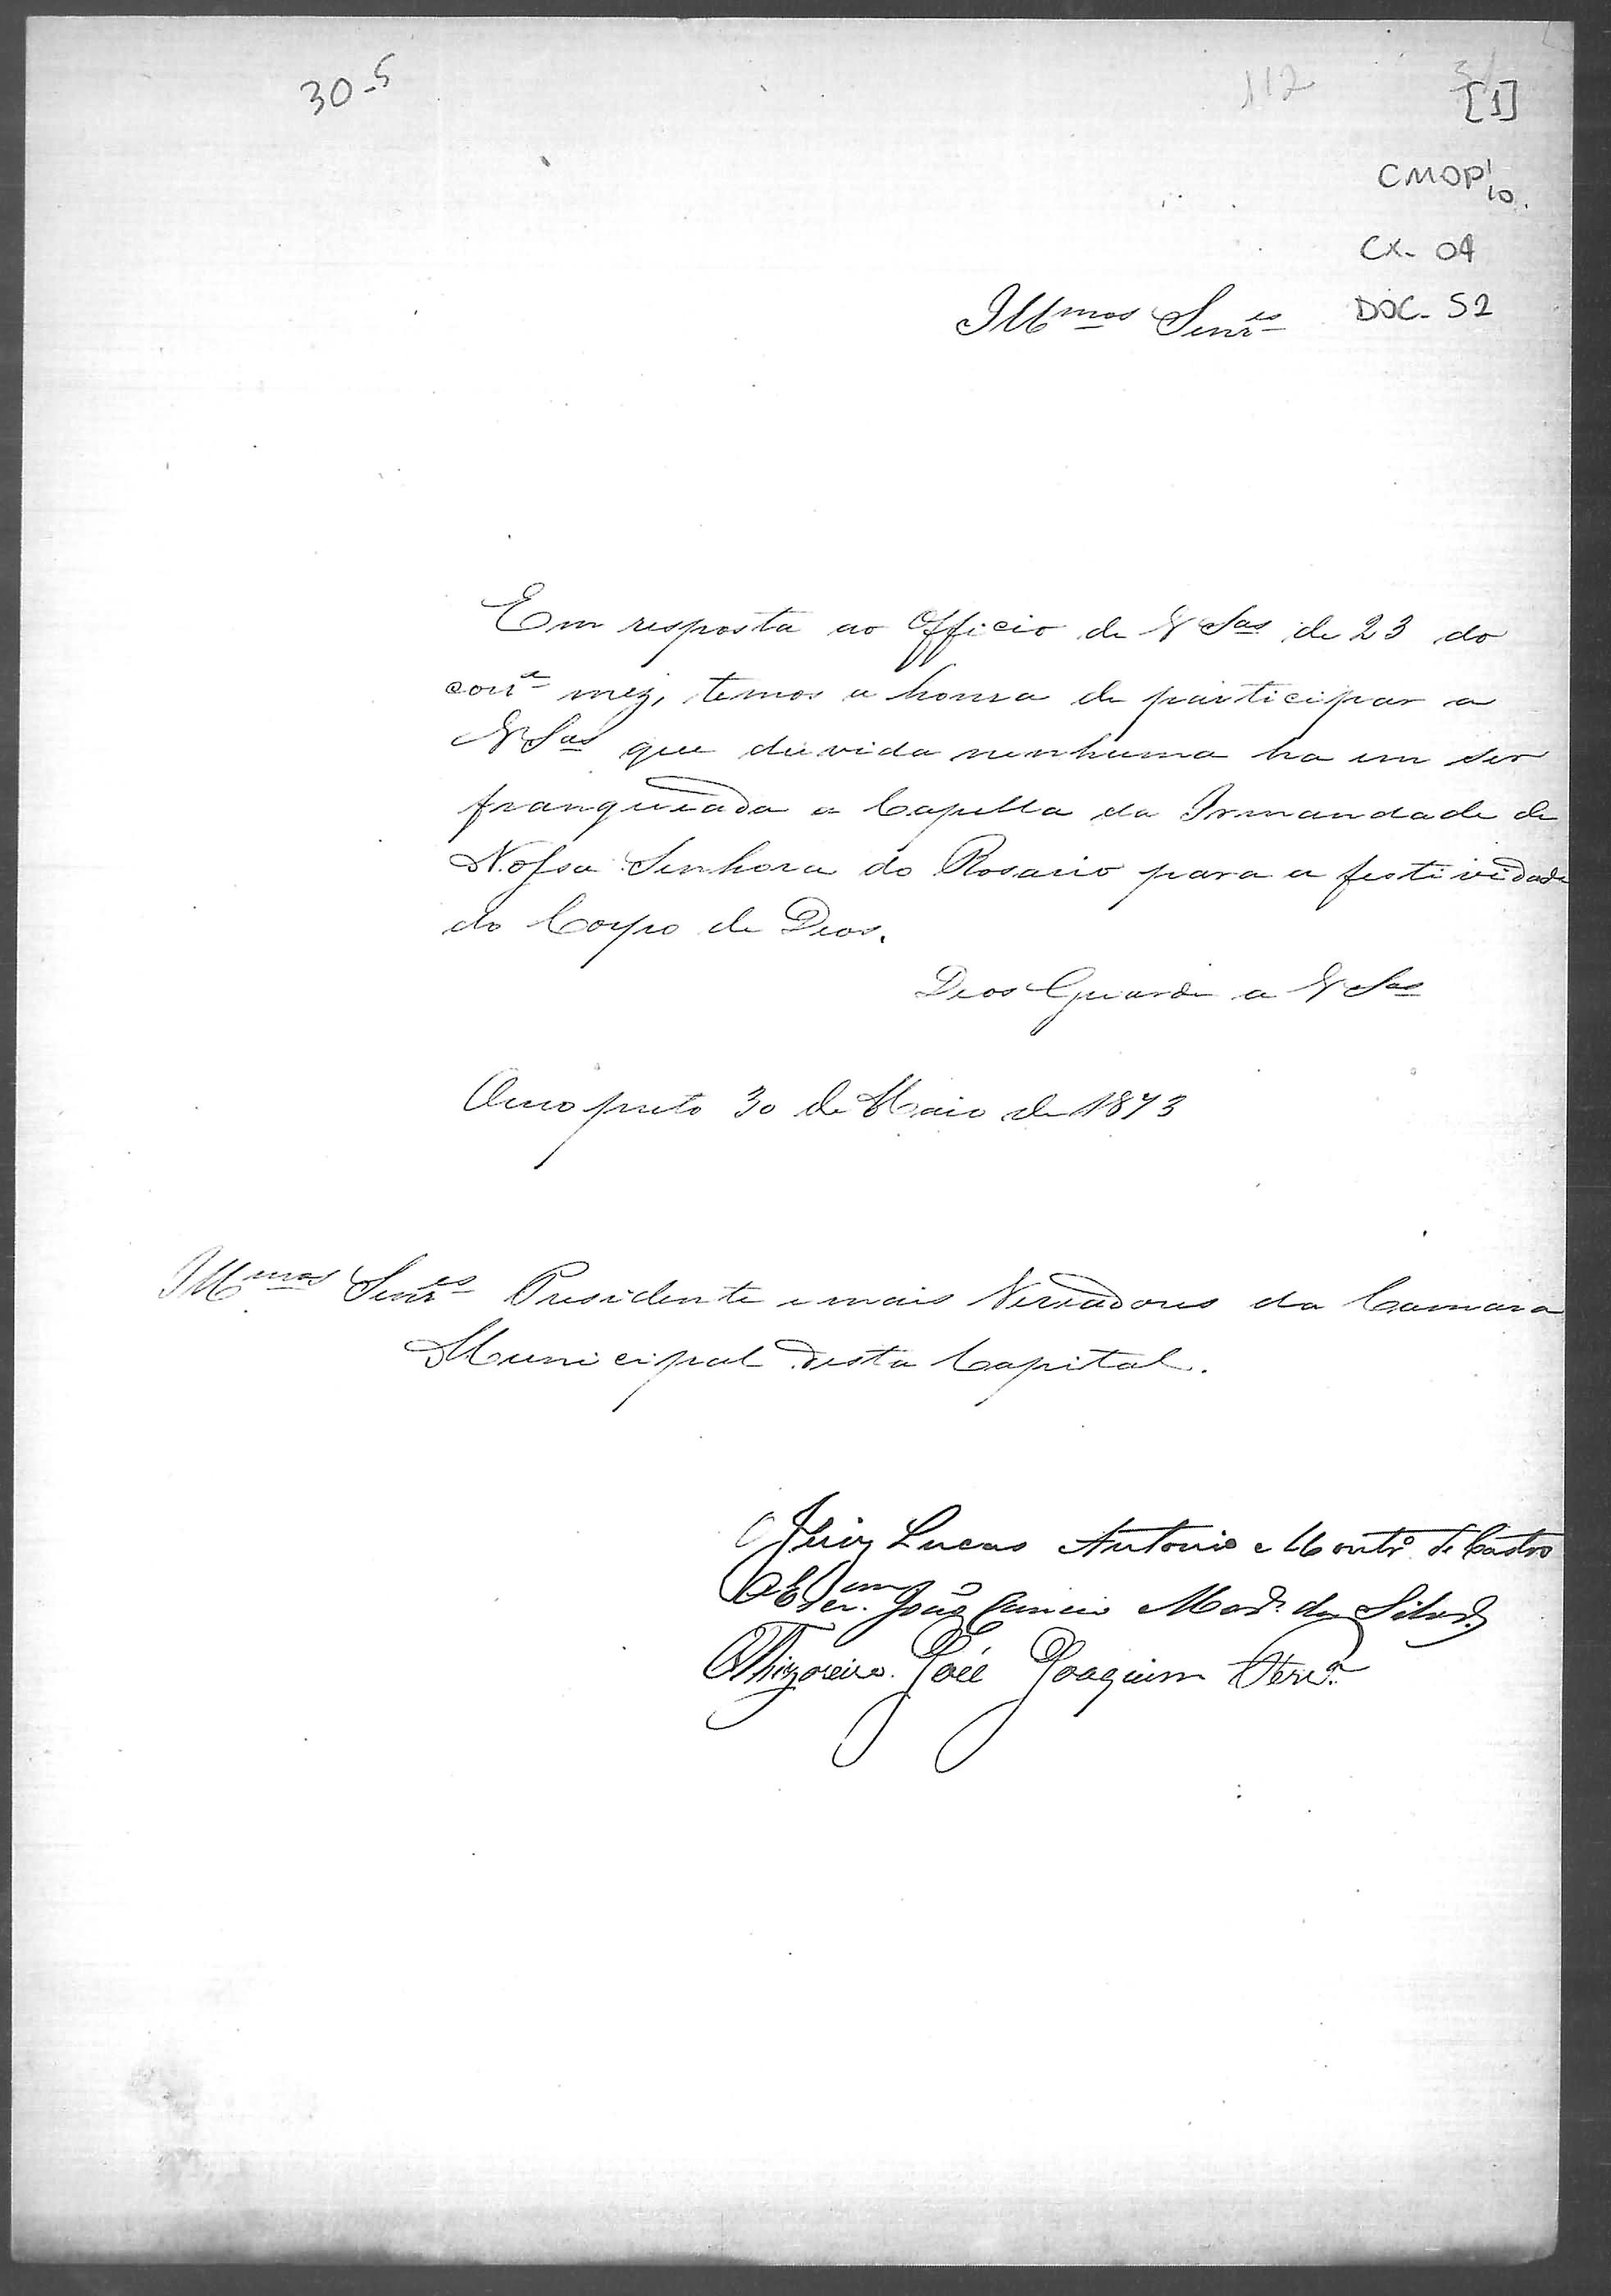 30-5
112
[1]
CMOP 1/10
CX- 04
DOC- 52
Illmos Senres
Em resposta ao Officio de V Sas de 23 do
corre mez, temos a honra de participar a
V Sas que duvida nenhuma ha em ser
franqueada a Capella da Irmandade de
Nossa Senhora do Rosario para a festividade
do Corpo de Deos.
Deos Guarde a V Sas
Ouro preto 30 de Maio de 1873
Illmos Senres Presidente e mais Vereadores da Camara
Municipal desta Capital.
O Juiz Lucas Antonio Montro de Castro
O Escram João da Silva
O Thizoreiro José Joaquim